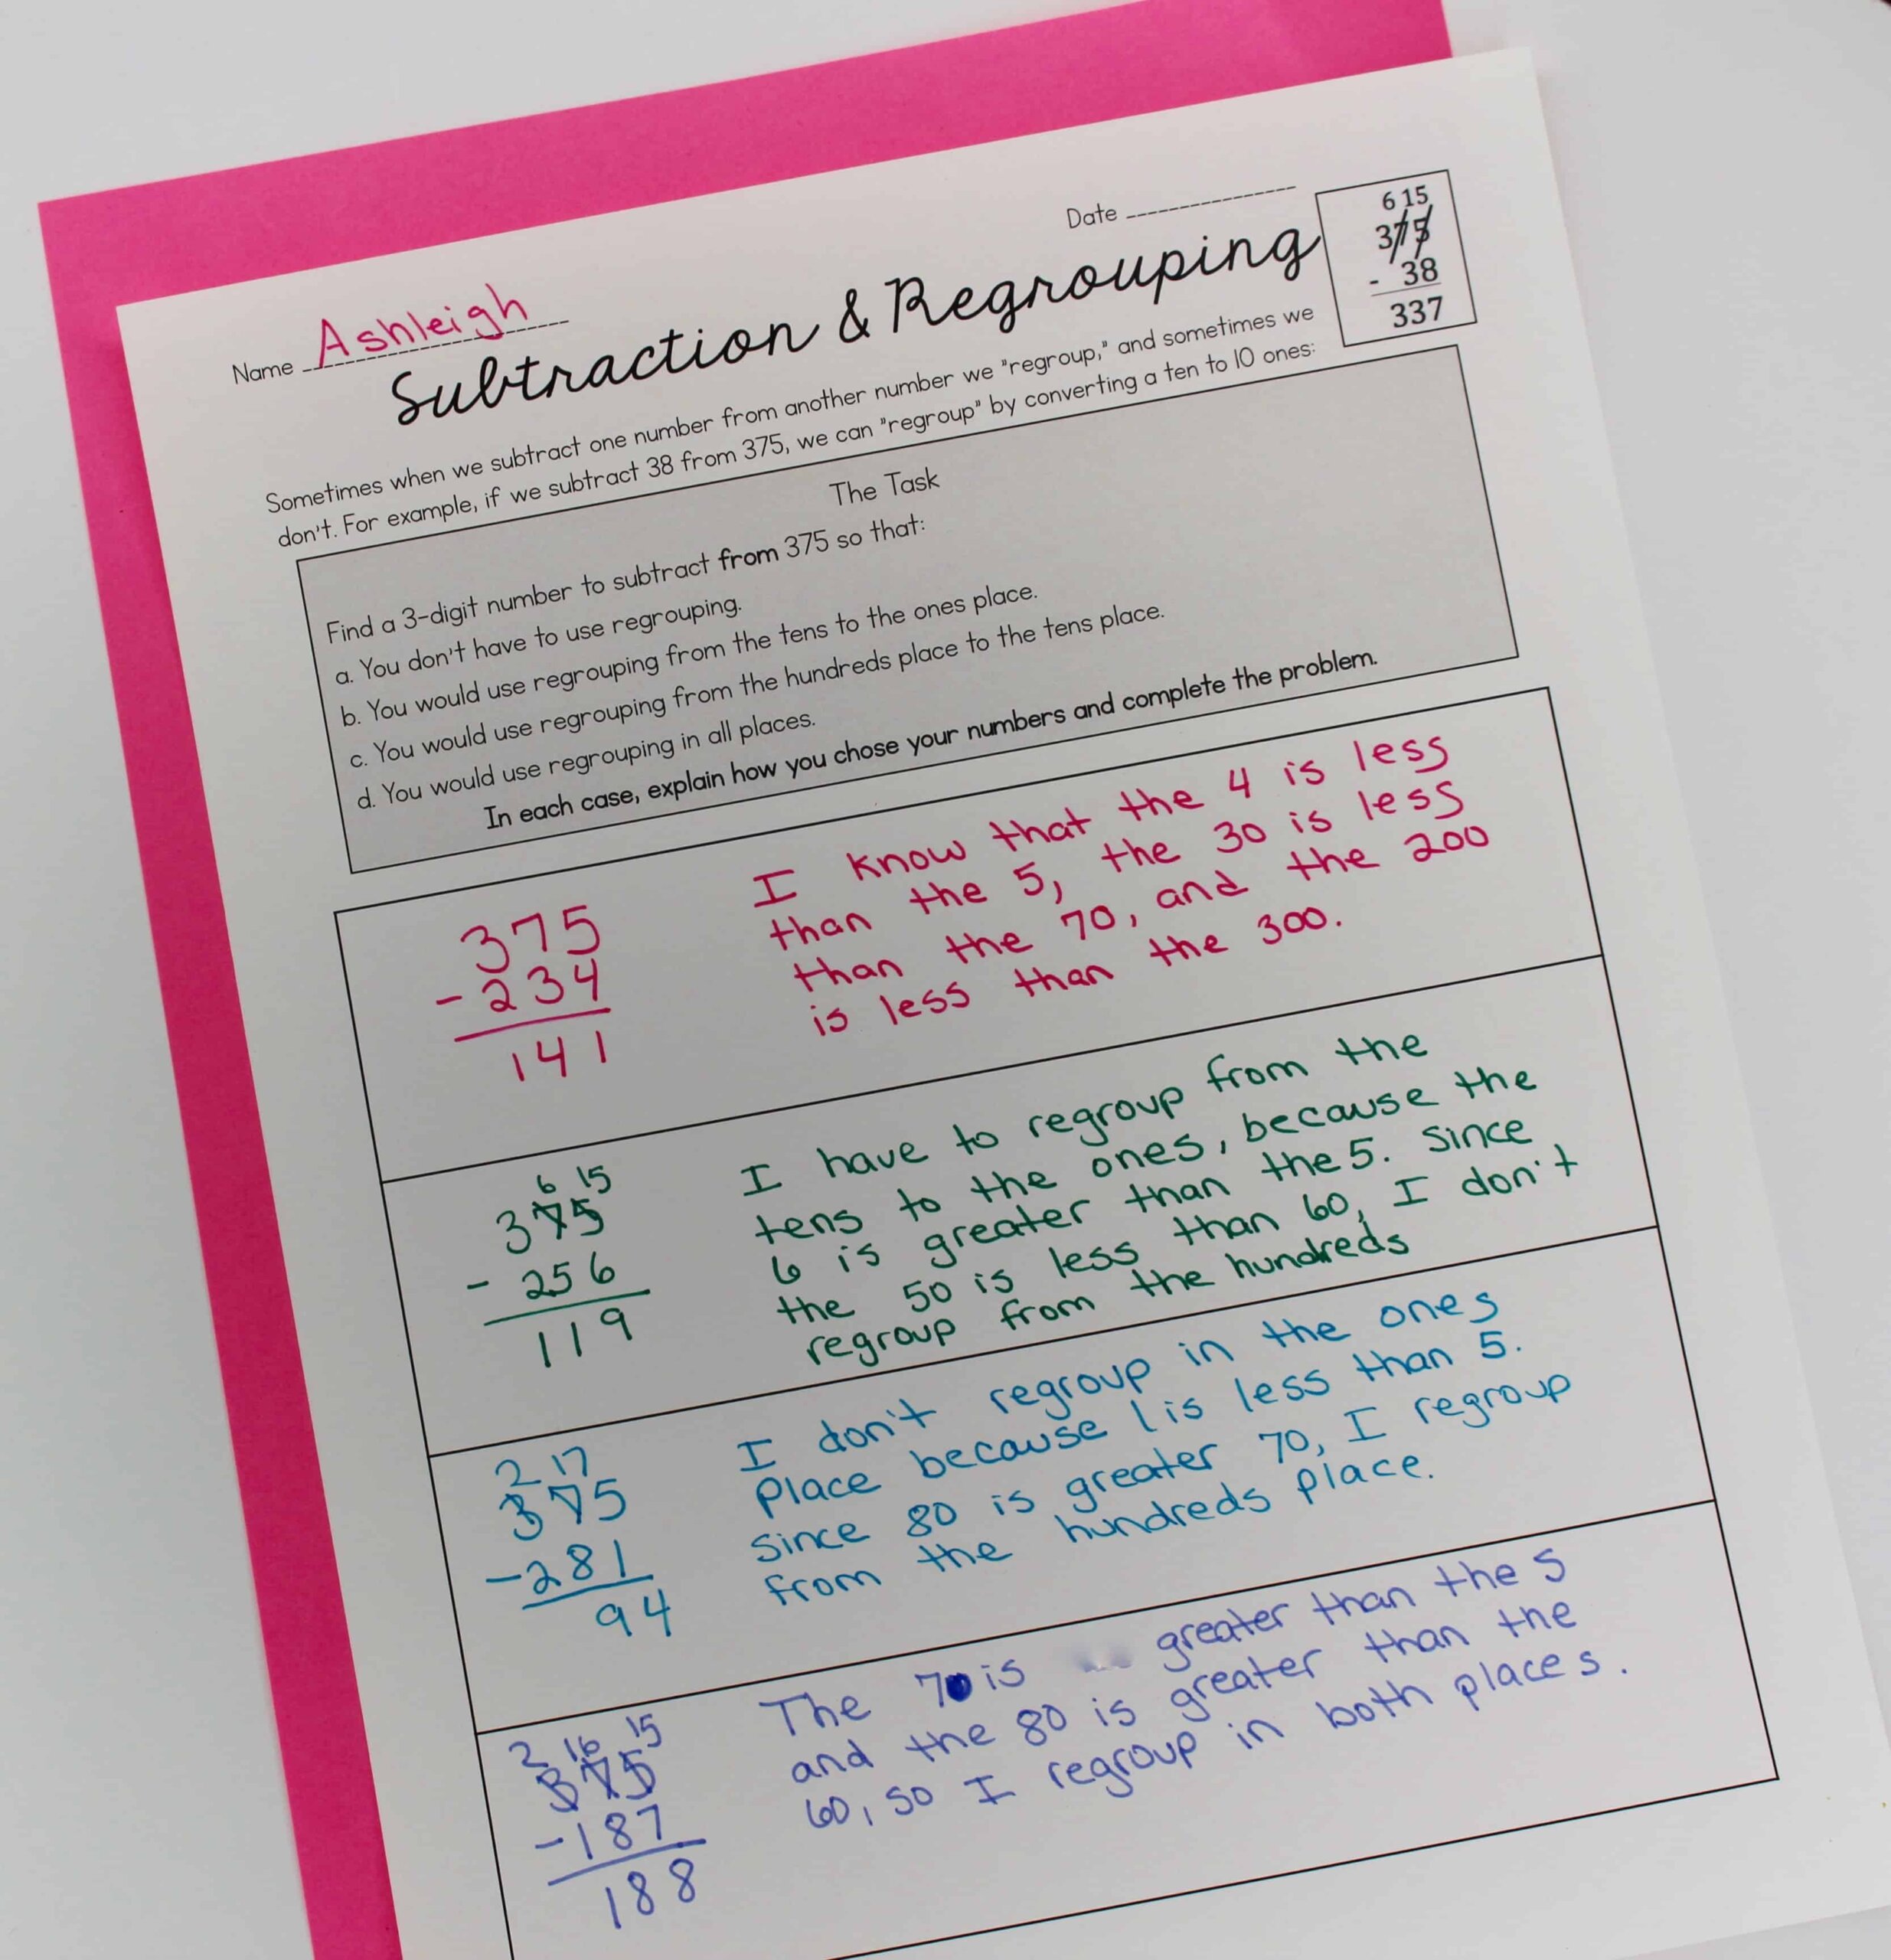 Date
Name Ashleigh
Subtraction & Regrouping
6 15
375
- 38
337
Sometimes when we subtract one number from another number we "regroup," and sometimes we
don't. For example, if we subtract 38 from 375, we can "regroup" by converting a ten to 10 ones:
The Task
Find a 3-digit number to subtract from 375 so that:
a. You don't have to use regrouping.
b. You would use regrouping from the tens to the ones place.
c. You would use regrouping from the hundreds place to the tens place.
d. You would use regrouping in all places.
In each case, explain how you chose your numbers and complete the problem.
375
- 234
141
I know that the 4 is less
than the 5, the 30 is less
than the 70, and the 200
is less than the 300.
6 15
375
- 256
119
I have to regroup from the
tens to the ones, because the
6 is greater than the 5. Since
the 50 is less than 60, I don't
regroup from the hundreds
2 17
375
- 281
94
I don't regroup in the ones
place because 1 is less than 5.
Since 80 is greater 70, I regroup
from the hundreds place.
2 16 15
375
- 187
188
The 7 is greater than the 5
and the 80 is greater than the
60, so I regroup in both places.